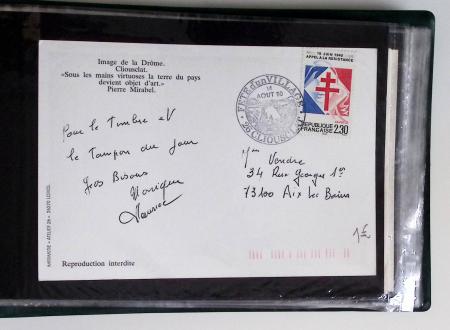 Image de la Drôme.
Cliousclat.
«Sous les mains virtuoses la terre du pays
devient objet d'art.»
Pierre Mirabel.
18 JUIN 1940
APPEL A LA RESISTANCE
REPUBLIQUE
FRANÇAISE 2,30
FÊTE d'un VILLAGE
14
AOUT 90
CLIOUSCLAT
Pour le timbre et
le tampon du jour
Gros Bisous
Monique
Maurice
Mme Vendre
34 Rue Georges 1er
73100 Aix les Bains
1€
Reproduction interdite